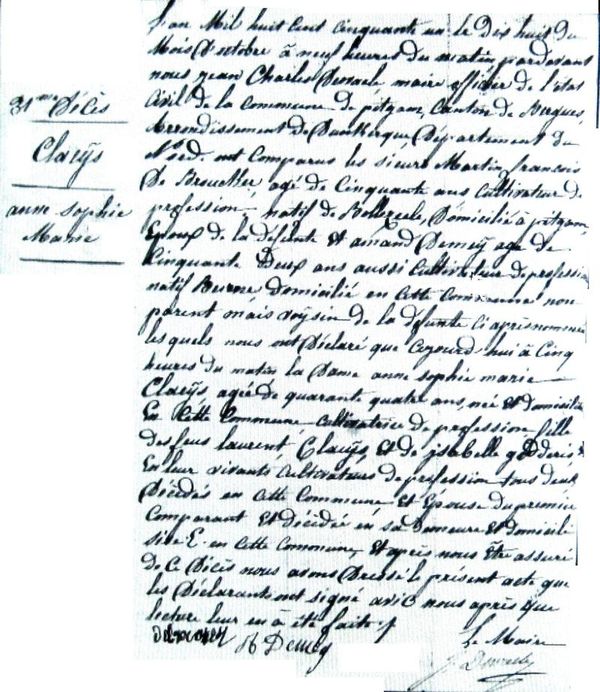 31me Décès
Claeÿs
anne sophie
Marie
L'an Mil huit cent cinquante un le Dix huit du
Mois D'octobre à neuf heures du matin pardevant
nous jean Charles maire officier de l'état
Civil de la commune de pitgam, Canton de Bergues,
Arrondissement de Dunkerque, Département du
Nord. ont Comparus les sieurs Martin francois
De Brouckter agé de Cinquante ans Cultivateur de
profession, natif de Domicilié à pitgam,
Epoux de la défunte Et amand Demeÿ agé de
Cinquante Deux ans aussi Cultivateur de profession
natif Domicilié en Cette Commune non
parent mais voÿsin de la défunte Ci après nommée
les quels nous ont Déclaré que Cejourd'hui à Cinq
heures du matin la Dame anne sophie marie
Claeÿs agée de quarante quatre ans, née Et Domiciliée
En Cette Commune Cultivatrice de profession fille
des feus laurent Claeÿs, Et de jsabelle
En leur vivants Cultivateurs de profession tous deux
Décédés en Cette Commune Et Epouse du premier
Comparant Et décédée en sa Demeure et Domicile
sise E. en Cette Commune, Et après nous Être assuré
de Ce Décès nous avons Dressé le présent acte que
les Déclarants ont signé avec nous après que
lecture leur en à été faite
Demeÿ
Le Maire